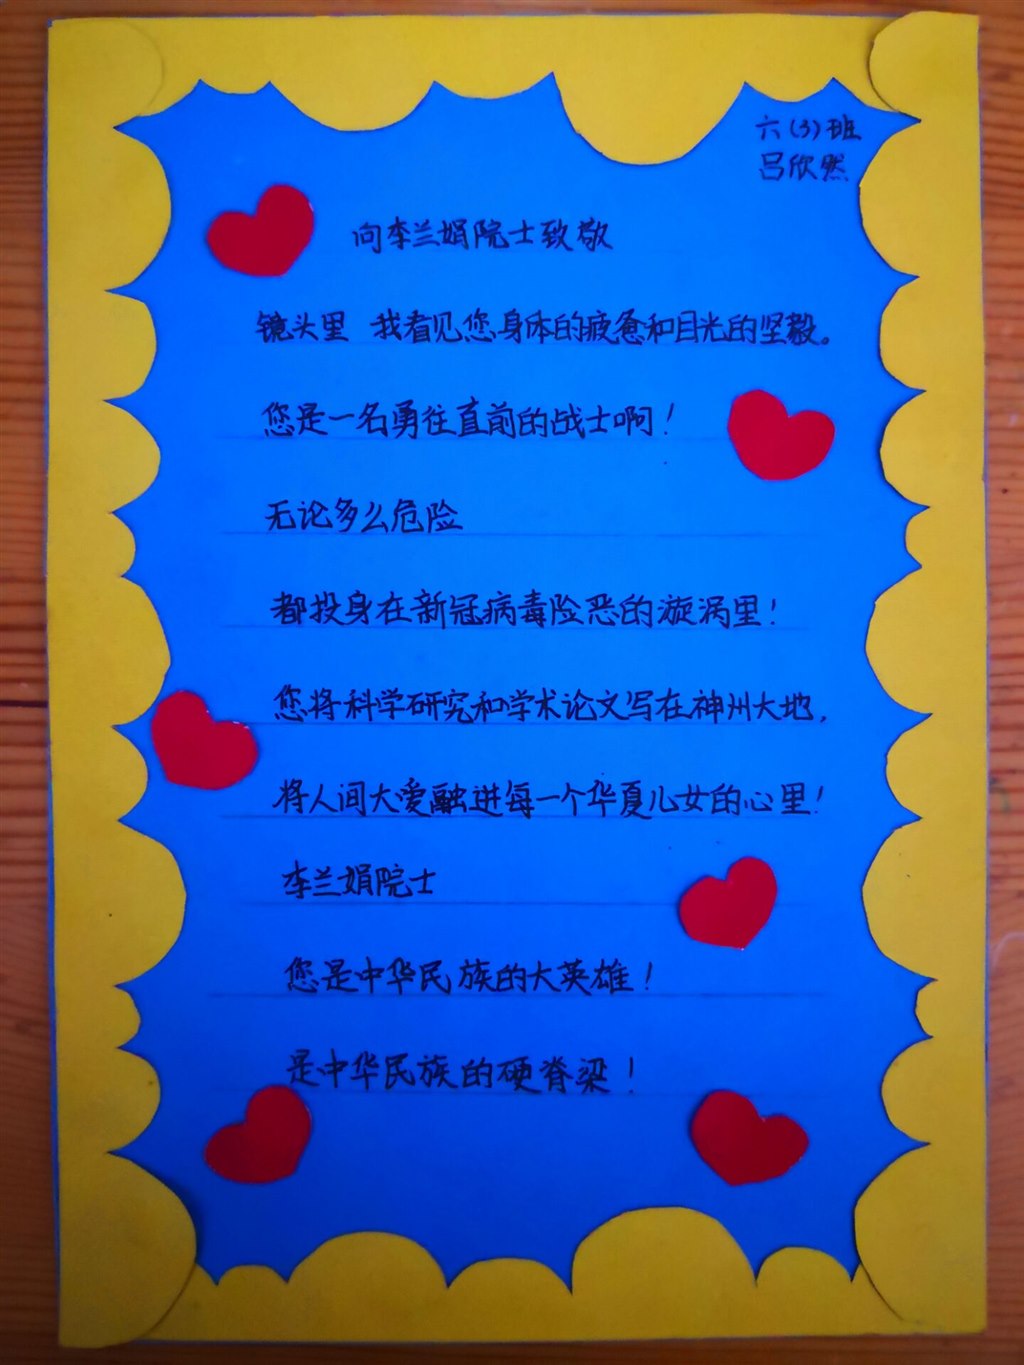 六(3)班
吕欣然
向李兰娟院士致敬
镜头里 我看见您身体的疲惫和目光的坚毅。
您是一名勇往直前的战士啊！
无论多么危险
都投身在新冠病毒险恶的漩涡里！
您将科学研究和学术论文写在神州大地，
将人间大爱融进每一个华夏儿女的心里！
李兰娟院士
您是中华民族的大英雄！
是中华民族的硬脊梁！